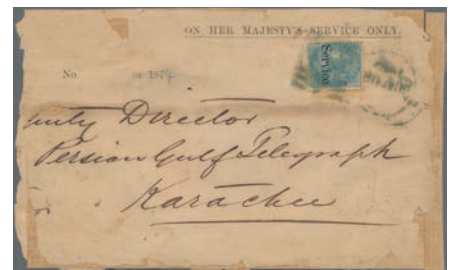 ON HER MAJESTY'S SERVICE ONLY.
Service
No. OF 187
puty Director
Persian Gulf Telegraph
Karachee